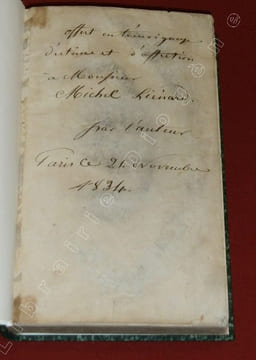 offert en témoignage
d'estime et d'affection
à Monsieur
Michel Liénard.
par l'auteur
Paris ce 21 novembre
1834.